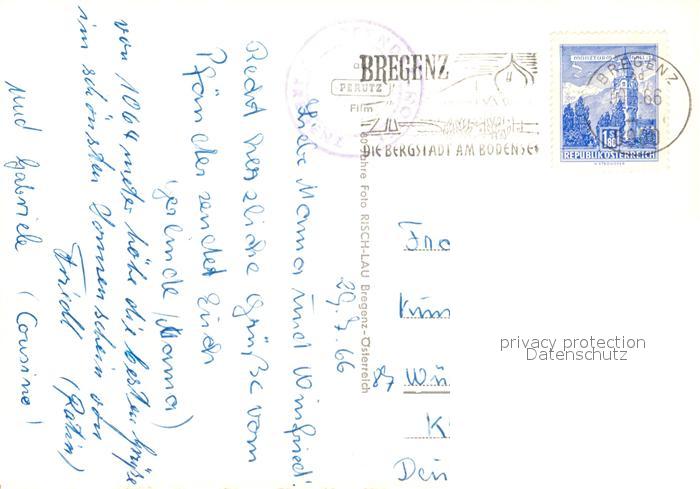 29.7.66
Liebe Mama und Winfried!
Recht herzliche Grüße vom
Pfänder sendet Euch
Gerlinde (Mama)
von 1064 meter höhe die besten Grüße
im schönsten Sonnenschein von
Friedl (Patin)
und Gabriele (Cousine!
BREGENZ
PERUTZ
Film
DIE BERGSTADT AM BODENSEE
MÜNZTURM
1.80
REPUBLIK ÖSTERREICH
BREGENZ
66
Foto RISCH-LAU Bregenz-Österreich
Fra
Wü
K
privacy protection
Datenschutz